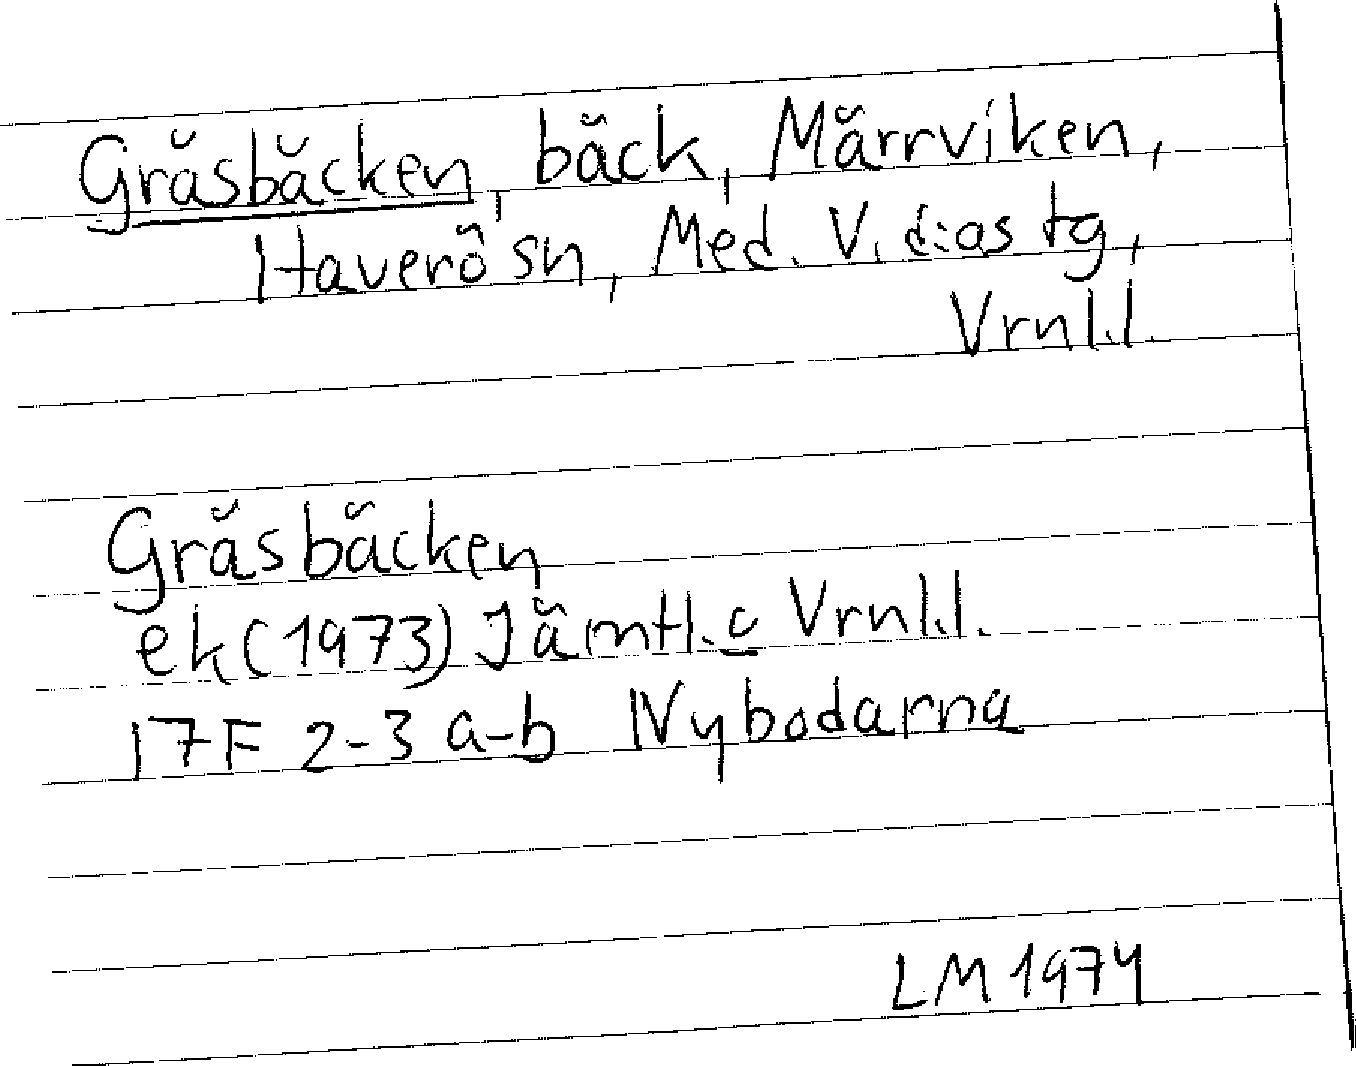 Gräsbäcken, bäck, Märrviken,
Haverö sn, Med. V. d:as tg,
Vrnl.l.
Gräsbäcken
ek (1973) Jämtl.c Vrnl.l.
17F 2-3 a-b Nybodarna
LM 1974